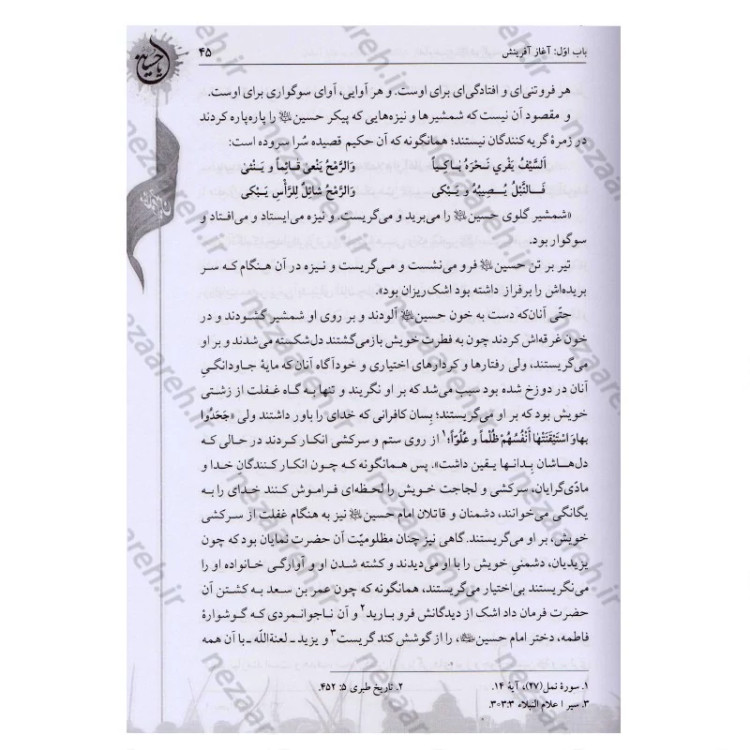 باب اوّل: آغاز آفرینش ۴۵
هر فروتنی‌ای و افتادگی‌ای برای اوست. و هر آوایی، آوای سوگواری برای اوست.
و مقصود آن نیست که شمشیرها و نیزه‌هایی که پیکر حسین را پاره‌پاره کردند
در زمرهٔ گریه کنندگان نیستند؛ همانگونه که آن حکیم قصیده سُرا سروده است:
اَلسَّیْفُ یَفْرِي نَـحْرَهُ بَـاکِیاً وَالرُّمْحُ یَنْعیٰ قَـائِماً وَ یَـنْثَنی
فَـالنَّبْلُ یُـصِیبُهُ وَ یَـبْکی وَالرُّمْحُ شائِلٌ لِلرَّأْسِ یَـبْکی
«شمشیر گلوی حسین را می‌برید و می‌گریست. و نیزه می‌ایستاد و می‌افتاد و
سوگوار بود.
تیر بر تن حسین فرو می‌نشست و مـی‌گریست و نـیزه در آن هـنگام کـه سـر
بریده‌اش را برفراز داشته بود اشک‌ریزان بود».
حتّی آنان‌که دست به خون حسین آلودند و بر روی او شمشیر گشودند و در
خون غرقه‌اش کردند چون به فطرت خویش بازمی‌گشتند دل‌شکسته می‌شدند و بر او
می‌گریستند، ولی رفتارها و کردارهای اختیاری و خودآگاه آنان که مایهٔ جاودانگیِ
آنان در دوزخ شده بود سبب می‌شد که بر او نگریند و تنها بـه گـاه غـفلت از زشتی
خویش بود که بر او می‌گریستند؛ بِسان کافرانی که خدای را باور داشتند ولی «جَحَدُوا
بِهَا وَ اسْتَیْقَنَتْهَا أَنْفُسُهُمْ ظُلْماً وَ عُلُوّاً؛۱ از روی ستم و سرکشی انکار کـردند در حالی کـه
دل‌هاشان بِدانـها یـقین داشت». پس همانگونه کـه چون انکار کـنندگان خدا و
مادّی‌گرایان، سرکشی و لجاجت خویش را لحظه‌ای فراموش کـنند خدای را بـه
یگانگی می‌خوانند، دشمنان و قاتلان امام حسین نیز به هنگام غفلت از سرکشی
خویش، بر او می‌گریستند. گاهی نیز چنان مظلومیّت آن حضرت نمایان بود که چون
یزیدیان، دشمنیِ خویش را با او می‌دیدند و کشته شدن او و آوارگی خانواده او را
می‌نگریستند بی‌اختیار می‌گریستند، همانگونه که چون عمر بن سعد بـه کشـتن آن
حضرت فرمان داد اشک از دیدگانش فرو بـارید۲ و آن نـاجوانـمردی کـه گـوشوارهٔ
فاطمه، دختر امام حسین، را از گوشش کند گریست۳ و یزید ـ لعنة‌اللّه ـ با آن همه
۱. سورهٔ نمل(۲۷)، آیهٔ ۱۴. ۲. تاریخ طبری ۵: ۴۵۲.
۳. سیر اعلام النبلاء ۳:۳۰۳.
nezaareh.ir